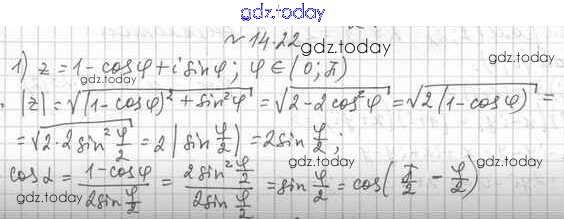 gdz.today
№ 14.22 gdz.today
1) z = 1 - cosφ + i sinφ; φ ∈ (0; π)
gdz.today
|z| = √((1 - cosφ)² + sin²φ) = √(2 - 2cos²φ) = √(2(1 - cosφ)) =
gdz.today
= √(2·2sin² φ/2) = 2|sin φ/2| = 2sin φ/2;
gdz.today gdz.today
cosα = (1 - cosφ)/(2sin φ/2) = (2sin² φ/2)/(2sin φ/2) = sin φ/2 = cos(π/2 - φ/2)
gdz.today
gdz.today